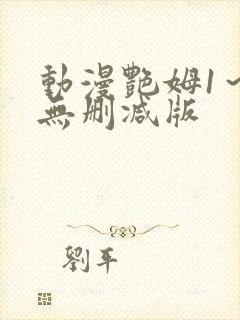 動漫艷姆1~
無刪減版
劉平